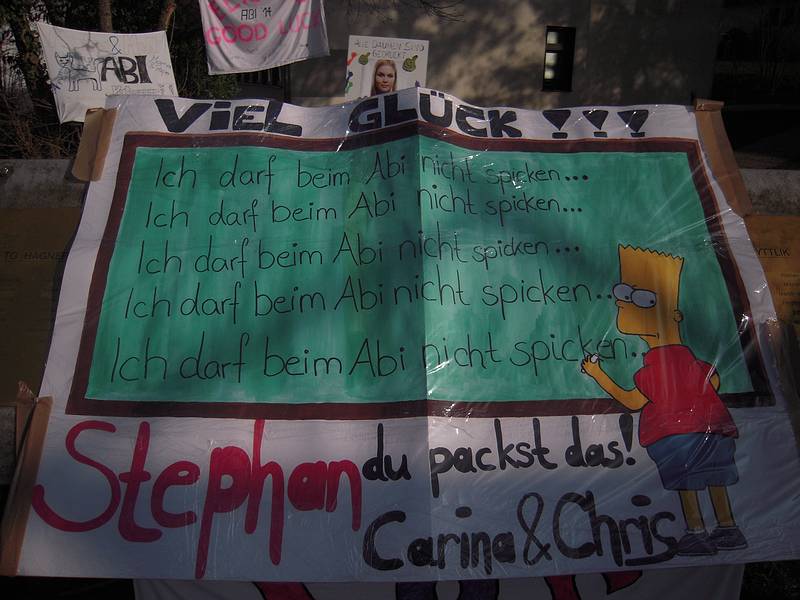 & ABI
ABI 14
GOOD LUCK
ALLE DAUMEN SIND
GEDRÜCKT
VIEL GLÜCK!!!
Ich darf beim Abi nicht spicken...
Ich darf beim Abi nicht spicken...
Ich darf beim Abi nicht spicken...
Ich darf beim Abi nicht spicken...
Ich darf beim Abi nicht spicken...
Stephan du packst das!
Carina & Chris